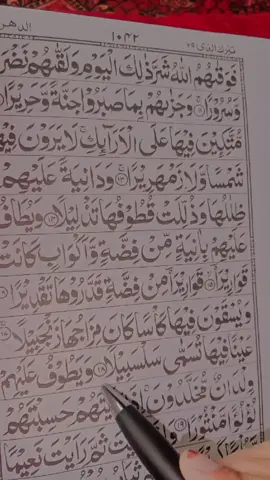 الدهر ٧٦
١٠٤٢
تبرك الذي ٢٩
فَوَقٰىهُمُ اللّٰهُ شَرَّ ذٰلِكَ الْيَوْمِ وَلَقّٰىهُمْ نَضْرَ
وَّسُرُوْرًا ۝۱۱ وَجَزٰىهُمْ بِمَا صَبَرُوْا جَنَّةً وَّحَرِيْرًا
مُّتَّكِـِٕيْنَ فِيْهَا عَلَى الْاَرَآئِكِ ۚ لَا يَرَوْنَ فِيْهَا
شَمْسًا وَّلَا زَمْهَرِيْرًا ۝۱۳ وَدَانِيَةً عَلَيْهِمْ
ظِلٰلُهَا وَذُلِّلَتْ قُطُوْفُهَا تَذْلِيْلًا ۝۱۴ وَيُطَافُ
عَلَيْهِمْ بِاٰنِيَةٍ مِّنْ فِضَّةٍ وَّاَكْوَابٍ كَانَتْ
قَوَارِيْرَا ۝۱۵ قَوَارِيْرَا مِنْ فِضَّةٍ قَدَّرُوْهَا تَقْدِيْرًا ۝۱۶
وَيُسْقَوْنَ فِيْهَا كَاْسًا كَانَ مِزَاجُهَا زَنْجَبِيْلًا ۝۱۷
عَيْنًا فِيْهَا تُسَمّٰى سَلْسَبِيْلًا ۝۱۸ وَيَطُوْفُ عَلَيْهِمْ
وِلْدَانٌ مُّخَلَّدُوْنَ ۚ حَسِبْتَهُمْ
لُؤْلُؤًا مَّنْثُوْرًا ۝۱۹ ثَمَّ رَاَيْتَ نَعِيْمًا